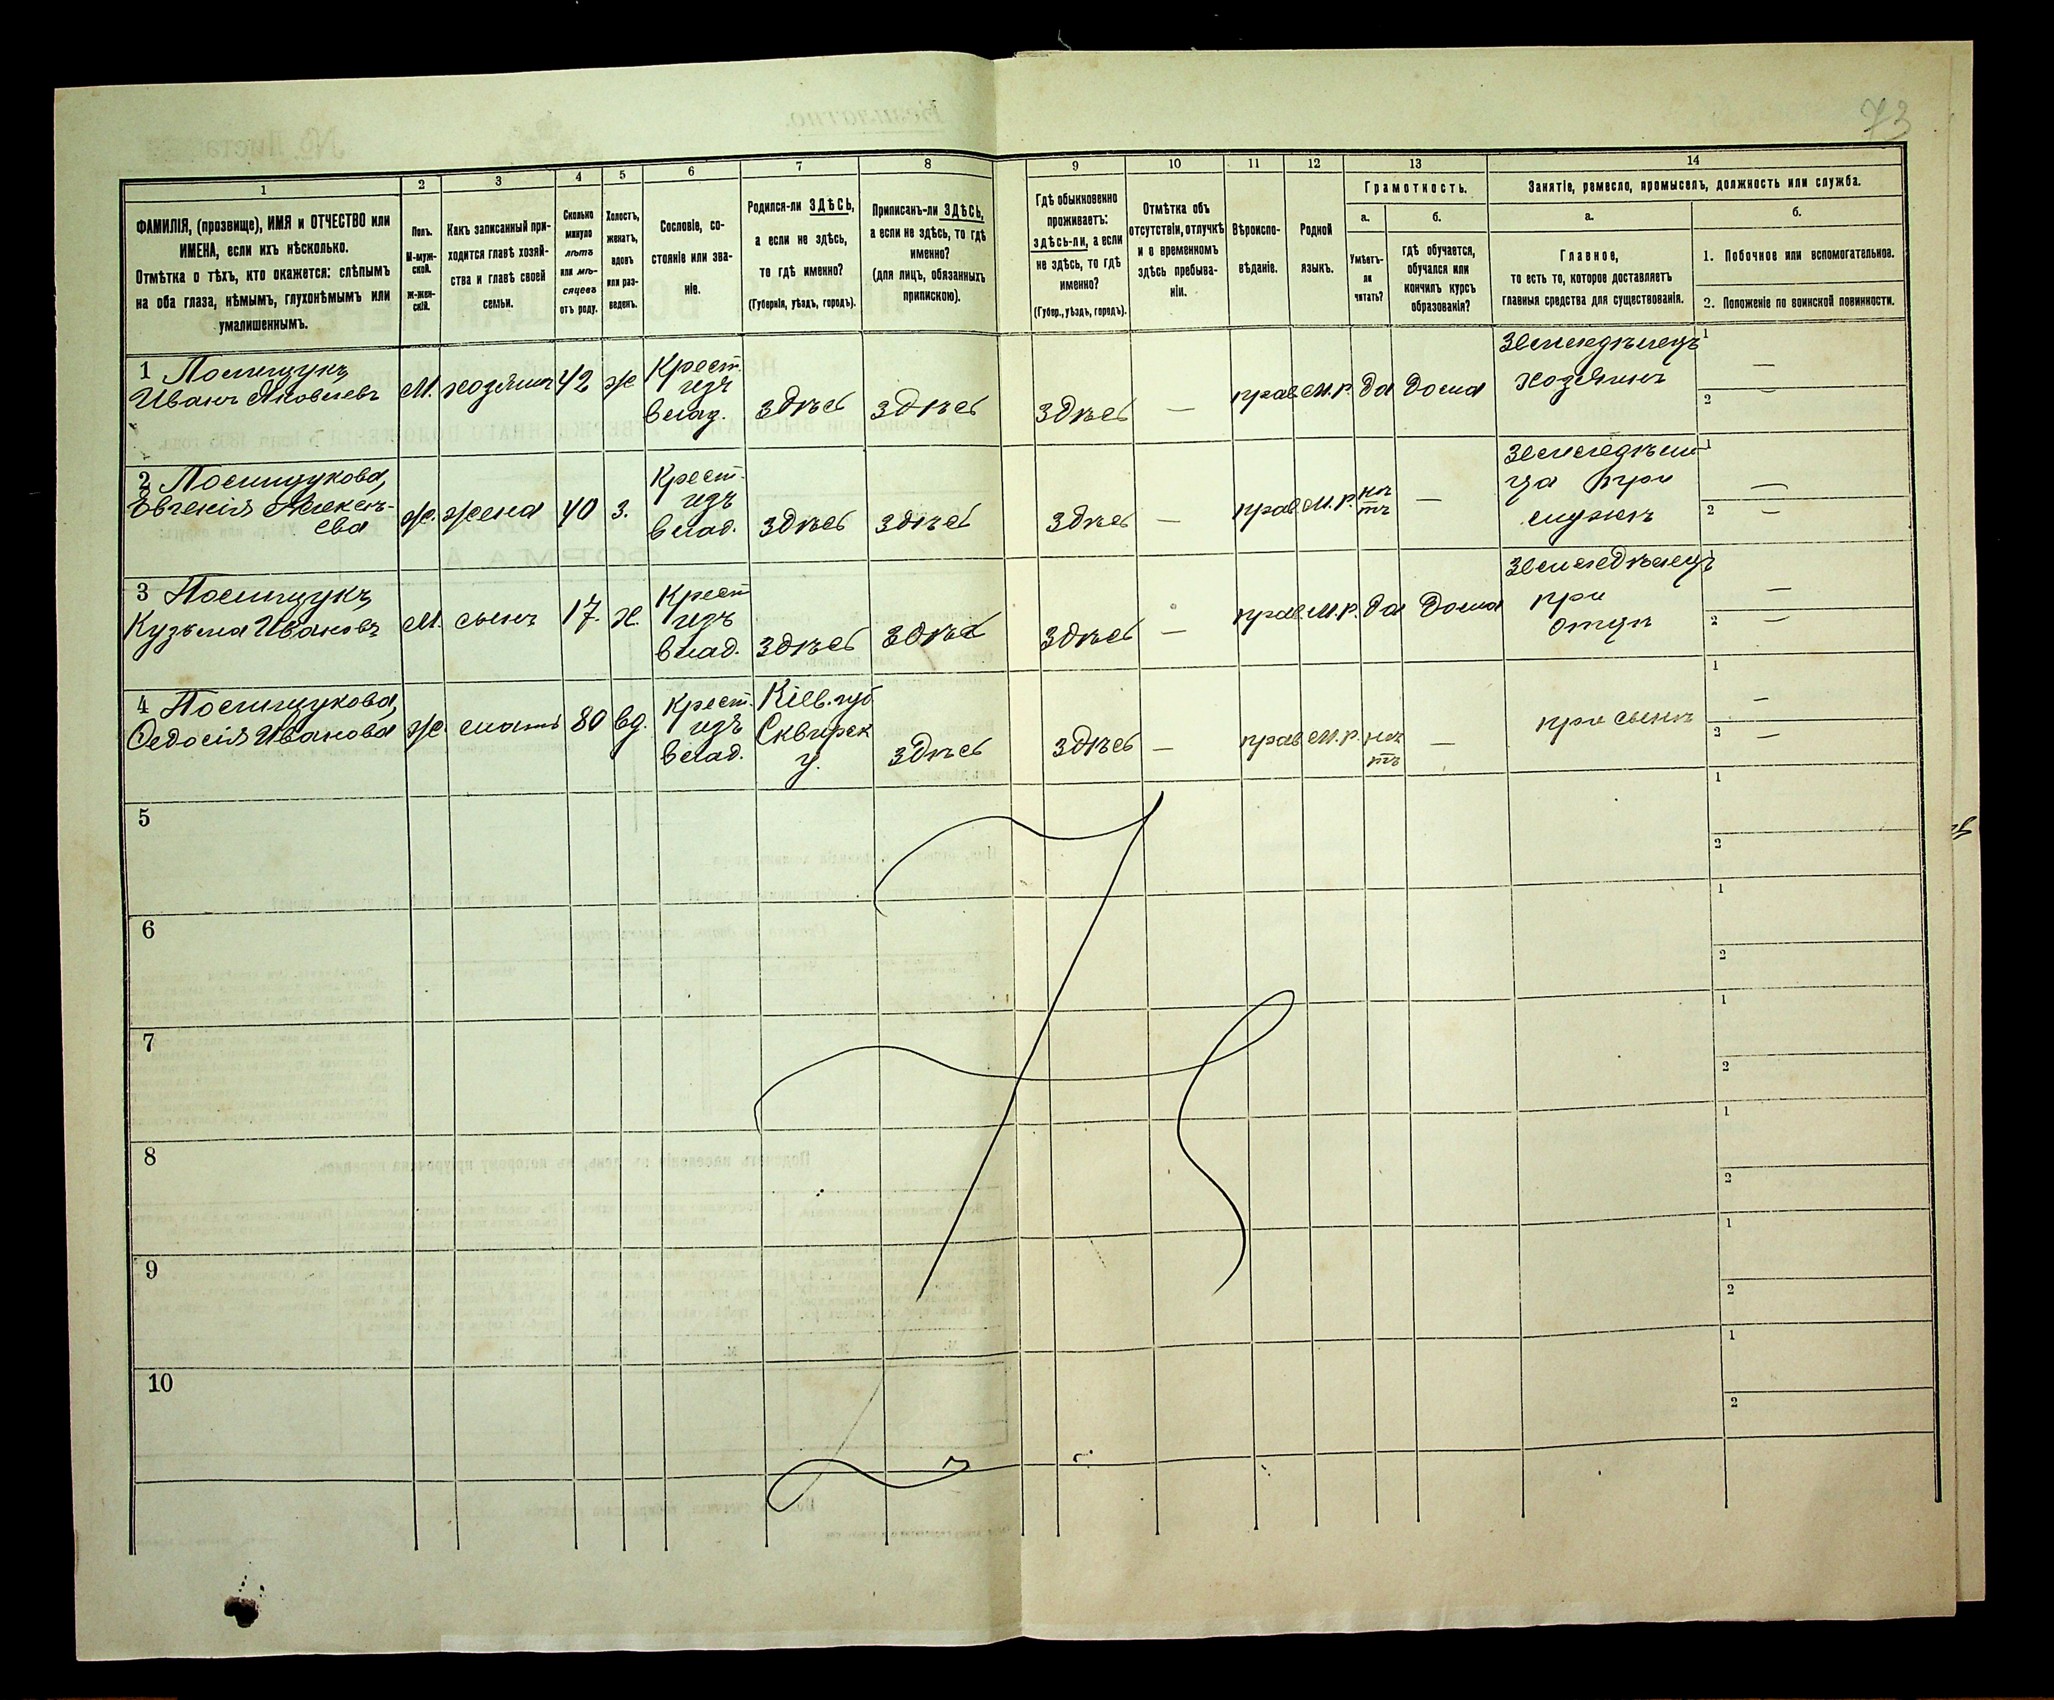 73
1 2 3 4 5 6 7 8 9 10 11 12 13 14
ФАМИЛІЯ, (прозвище), ИМЯ и ОТЧЕСТВО или
ИМЕНА, если ихъ нѣсколько.
Отмѣтка о тѣхъ, кто окажется: слѣпымъ
на оба глаза, нѣмымъ, глухонѣмымъ или
умалишеннымъ.
Полъ.
М-муж-
ской.
Ж-жен-
скій.
Какъ записанный при-
ходится главѣ хозяй-
ства и главѣ своей
семьи.
Сколько
минуло
лѣтъ
или мѣ-
сяцевъ
отъ роду.
Холостъ,
женатъ,
вдовъ
или раз-
веденъ.
Сословіе, со-
стояніе или зва-
ніе.
Родился-ли ЗДѢСЬ,
а если не здѣсь,
то гдѣ именно?
(Губернія, уѣздъ, городъ).
Приписанъ-ли ЗДѢСЬ,
а если не здѣсь, то гдѣ
именно?
(для лицъ, обязанныхъ
припискою).
Гдѣ обыкновенно
проживаетъ:
здѣсь-ли, а если
не здѣсь, то гдѣ
именно?
(Губер., уѣздъ, городъ).
Отмѣтка объ
отсутствіи, отлучкѣ
и о временномъ
здѣсь пребыва-
ніи.
Вѣроиспо-
вѣданіе.
Родной
языкъ.
Грамотность.
а.
Умѣетъ-
ли
читать?
б.
гдѣ обучается,
обучался или
кончилъ курсъ
образованія?
Занятіе, ремесло, промыселъ, должность или служба.
а.
Главное,
то есть то, которое доставляетъ
главныя средства для существованія.
б.
1. Побочное или вспомогательное.
2. Положеніе по воинской повинности.
1 Полищукъ,
Иванъ Яковлевъ
М. хозяинъ 42 ж
Крест.
изъ
влад.
здѣсь здѣсь здѣсь — прав. м.р. да дома
Земледѣлецъ
хозяинъ
1 —
2 —
2 Полищукова,
Евгенія Алексѣ-
ева
Ж. жена 40 з.
Крест.
изъ
влад.
здѣсь здѣсь здѣсь — прав. м.р.
нѣ
тъ
—
Земледѣли-
ца при
мужѣ
1 —
2 —
3 Полищукъ,
Кузьма Ивановъ
М. сынъ 17. Х.
Крест
изъ
влад.
здѣсь здѣсь здѣсь — прав. м.р. да дома
Земледѣлецъ
при
отцѣ
1 —
2 —
4 Полищукова,
Федосія Иванова
Ж мать 80 вд.
Крест.
изъ
влад.
Кіев. губ
Сквирск
у.
здѣсь здѣсь — прав. м.р.
нѣ
тъ
—
при сынѣ
1 —
2 —
5
1
2
6
1
2
7
1
2
8
1
2
9
1
2
10
1
2